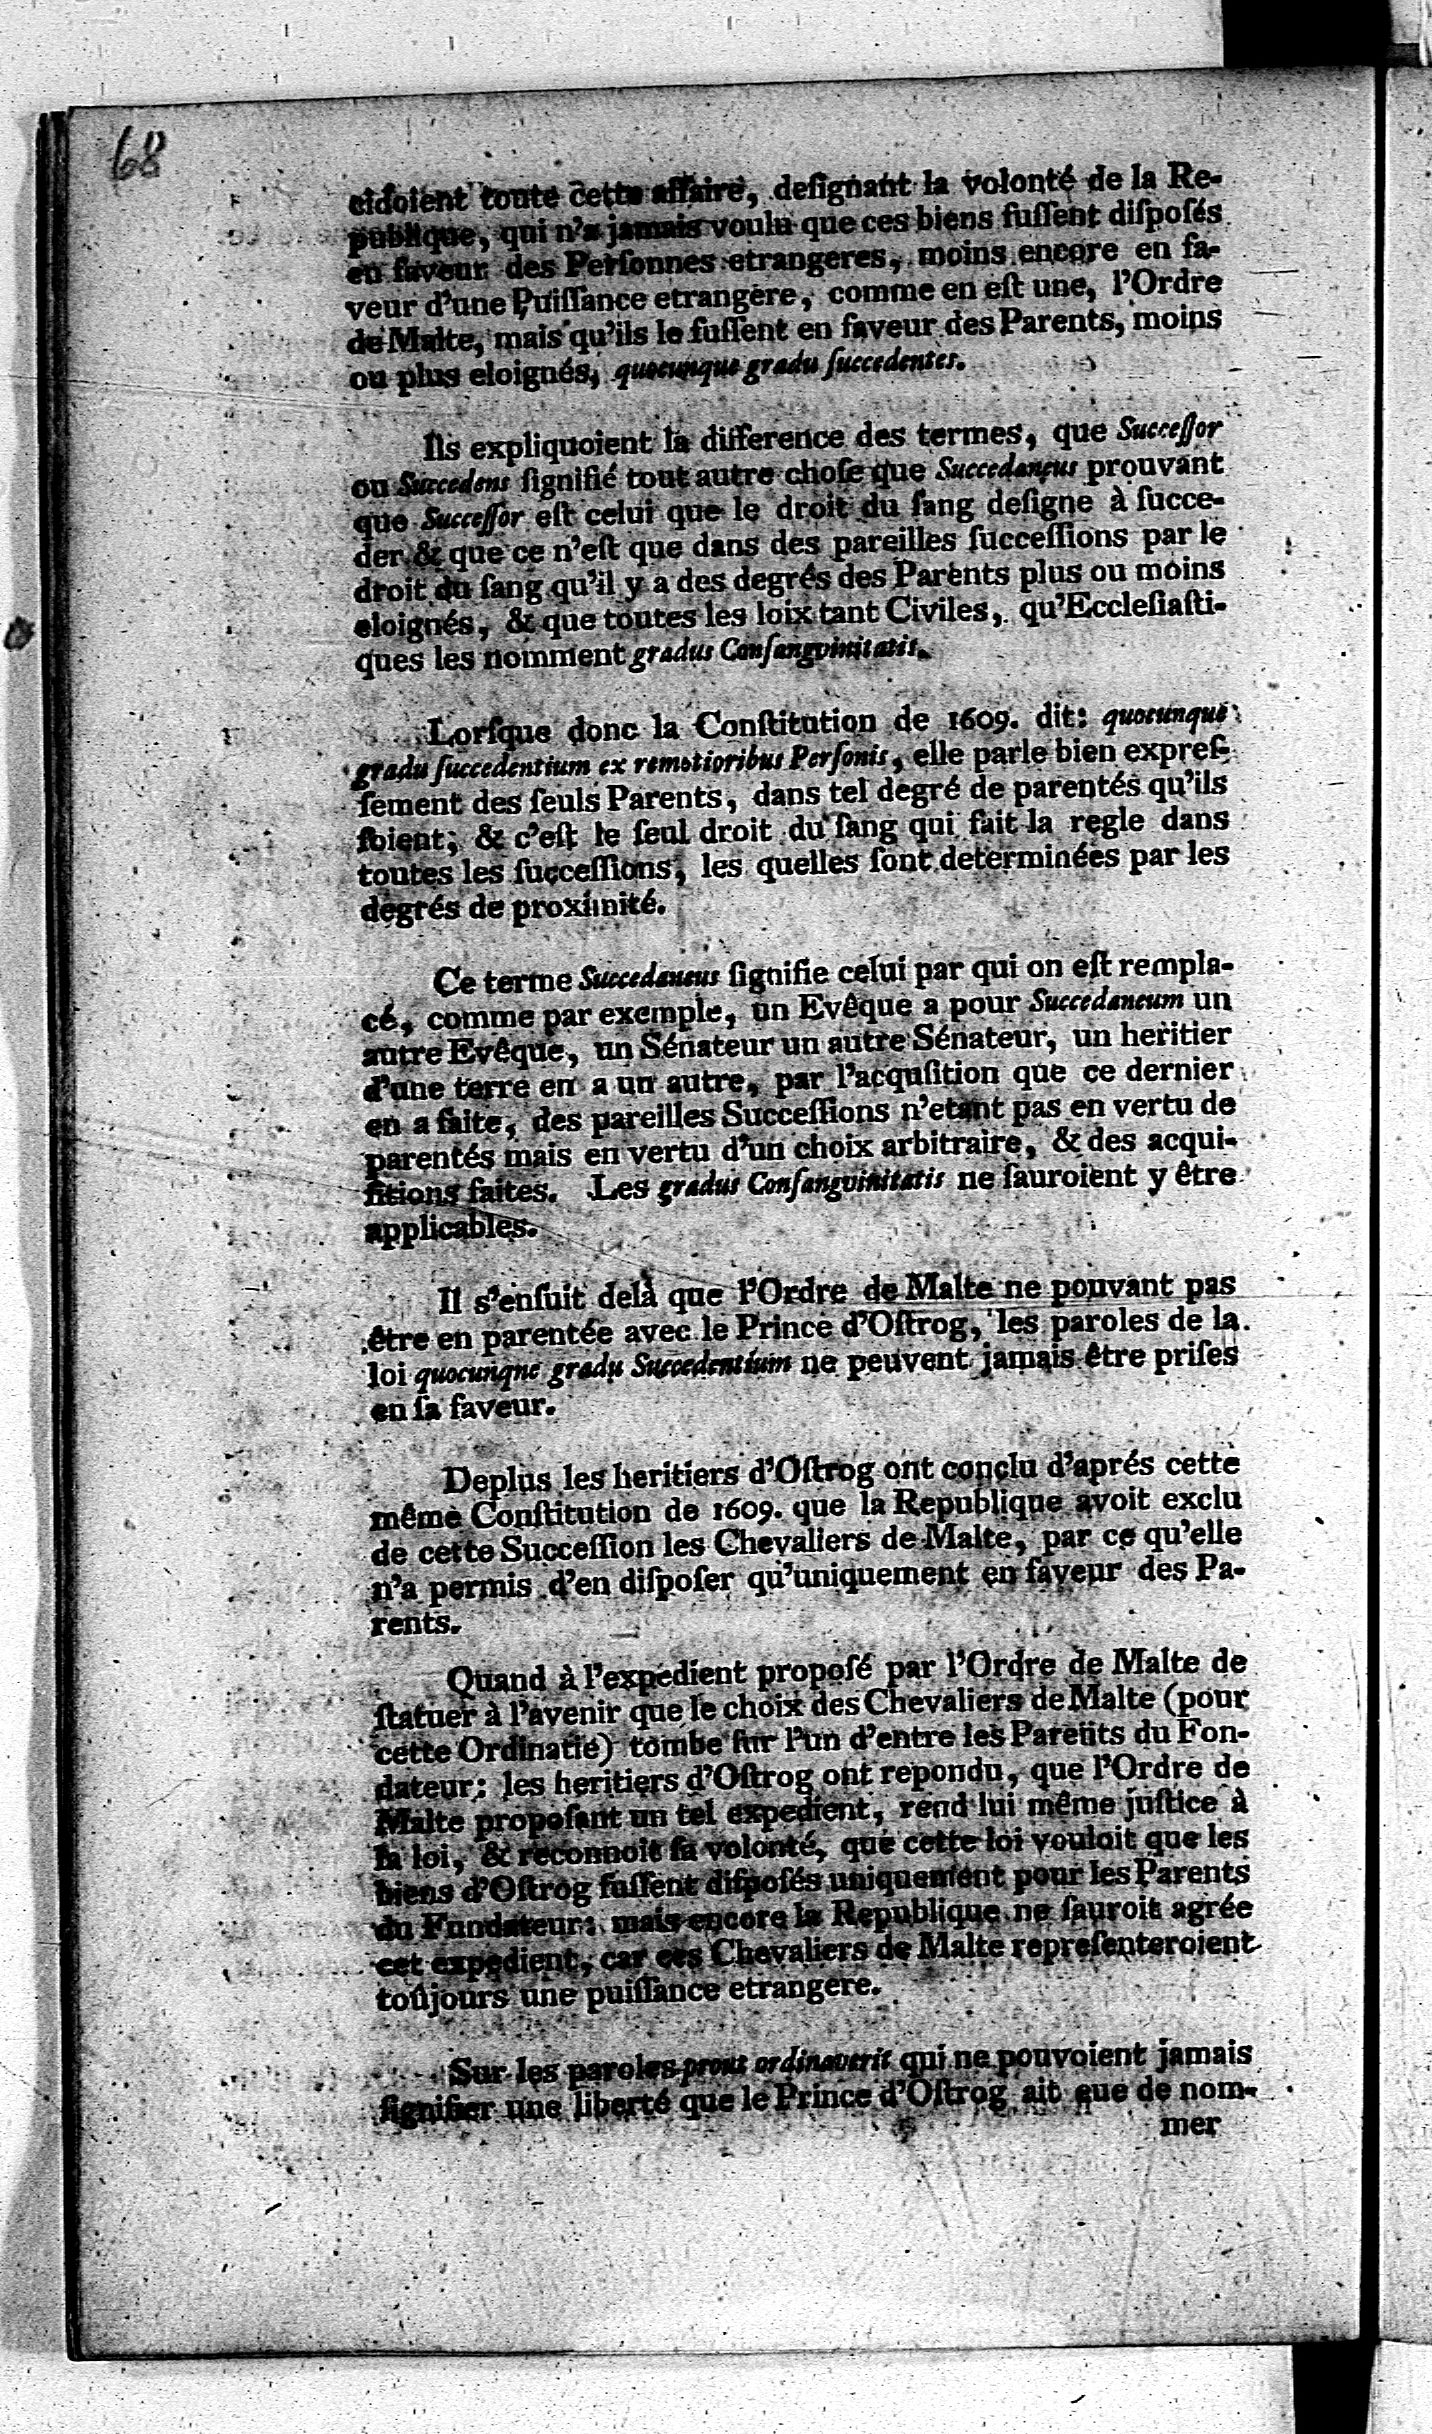 68
cidoient toute cette affaire, deſignant la volonté de la Re-
publique, qui n'a jamais voulu que ces biens fuſſent diſpoſés
en faveur des Perſonnes etrangeres, moins encore en fa-
veur d'une Puiſſance etrangère, comme en eſt une, l'Ordre
de Malte, mais qu'ils le fuſſent en faveur des Parents, moins
ou plus eloignés, quocunque gradu ſuccedentes.
Ils expliquoient la difference des termes, que Succeſſor
ou Succedens ſignifié tout autre choſe que Succedaneus prouvant
que Succeſſor eſt celui que le droit du ſang deſigne à ſucce-
der & que ce n'eſt que dans des pareilles ſucceſſions par le
droit du ſang qu'il y a des degrés des Parents plus ou moins
eloignés, & que toutes les loix tant Civiles, qu'Eccleſiaſti-
ques les nomment gradus Conſangvinitatis.
Lorſque donc la Conſtitution de 1609. dit: quocunque
gradu ſuccedentium ex remotioribus Perſonis, elle parle bien expreſ-
ſement des ſeuls Parents, dans tel degré de parentés qu'ils
ſoient; & c'eſt le ſeul droit du ſang qui fait la regle dans
toutes les ſucceſſions, les quelles ſont determinées par les
degrés de proximité.
Ce terme Succedaneus ſignifie celui par qui on eſt rempla-
cé, comme par exemple, un Evêque a pour Succedaneum un
autre Evêque, un Sénateur un autre Sénateur, un heritier
d'une terre en a un autre, par l'acquſition que ce dernier
en a faite, des pareilles Succeſſions n'etant pas en vertu de
parentés mais en vertu d'un choix arbitraire, & des acqui-
ſitions faites. Les gradus Conſangvinitatis ne ſauroient y être
applicables.
Il s'enſuit delà que l'Ordre de Malte ne pouvant pas
être en parentée avec le Prince d'Oſtrog, les paroles de la
loi quocunqne gradu Succedentium ne peuvent jamais être priſes
en ſa faveur.
Deplus les heritiers d'Oſtrog ont conclu d'aprés cette
même Conſtitution de 1609. que la Republique avoit exclu
de cette Succeſſion les Chevaliers de Malte, par ce qu'elle
n'a permis d'en diſpoſer qu'uniquement en faveur des Pa-
rents.
Quand à l'expedient propoſé par l'Ordre de Malte de
ſtatuer à l'avenir que le choix des Chevaliers de Malte (pour
cette Ordinatie) tombe ſur l'un d'entre les Parents du Fon-
dateur; les heritiers d'Oſtrog ont repondu, que l'Ordre de
Malte propoſant un tel expedient, rend lui même juſtice à
la loi, & reconnoit ſa volonté, que cette loi vouloit que les
biens d'Oſtrog fuſſent diſpoſés uniquement pour les Parents
du Fundateur: mais encore la Republique ne ſauroit agrée
cet expedient, car ces Chevaliers de Malte repreſenteroient
toûjours une puiſſance etrangere.
Sur les paroles prout ordinaverit qui ne pouvoient jamais
ſignifier une liberté que le Prince d'Oſtrog ait eue de nom-
mer